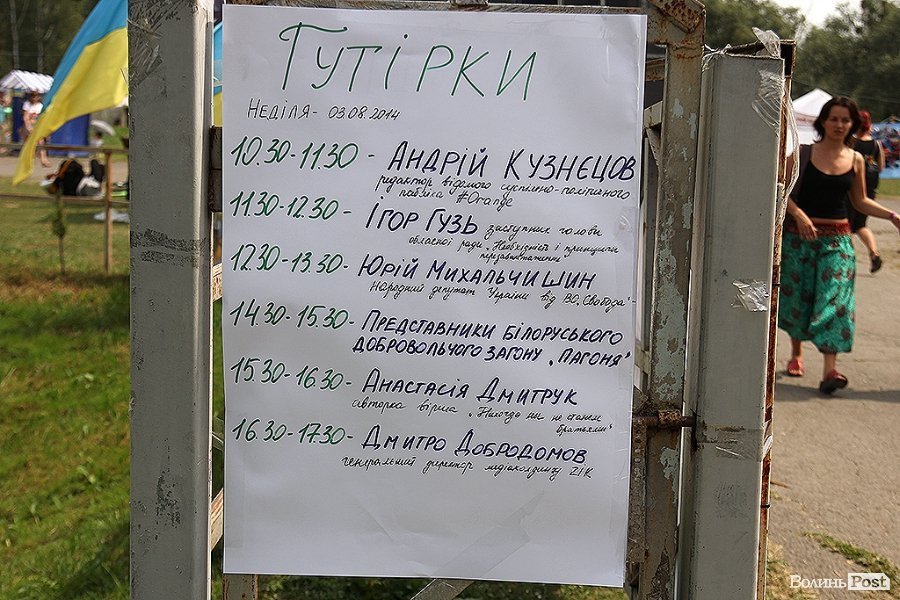 Гутірки
Неділя - 03.08.2014
10.30-11.30 - Андрій Кузнєцов
редактор відомого суспільно-політичного
пабліка #Orange
11.30-12.30 - Ігор Гузь заступник голови
обласної ради „Необхідність і принципи
перезавантаження
12.30-13.30 - Юрій Михальчишин
Народний депутат України від ВО „Свобода“
14.30-15.30 - Представники Білоруського
добровольчого загону „Пагоня“
15.30-16.30 - Анастасія Дмитрук
авторка вірша „Никогда мы не станем
братьями“
16.30-17.30 - Дмитро Добродомов
генеральний директор медіахолдингу ZIK
Волинь Post